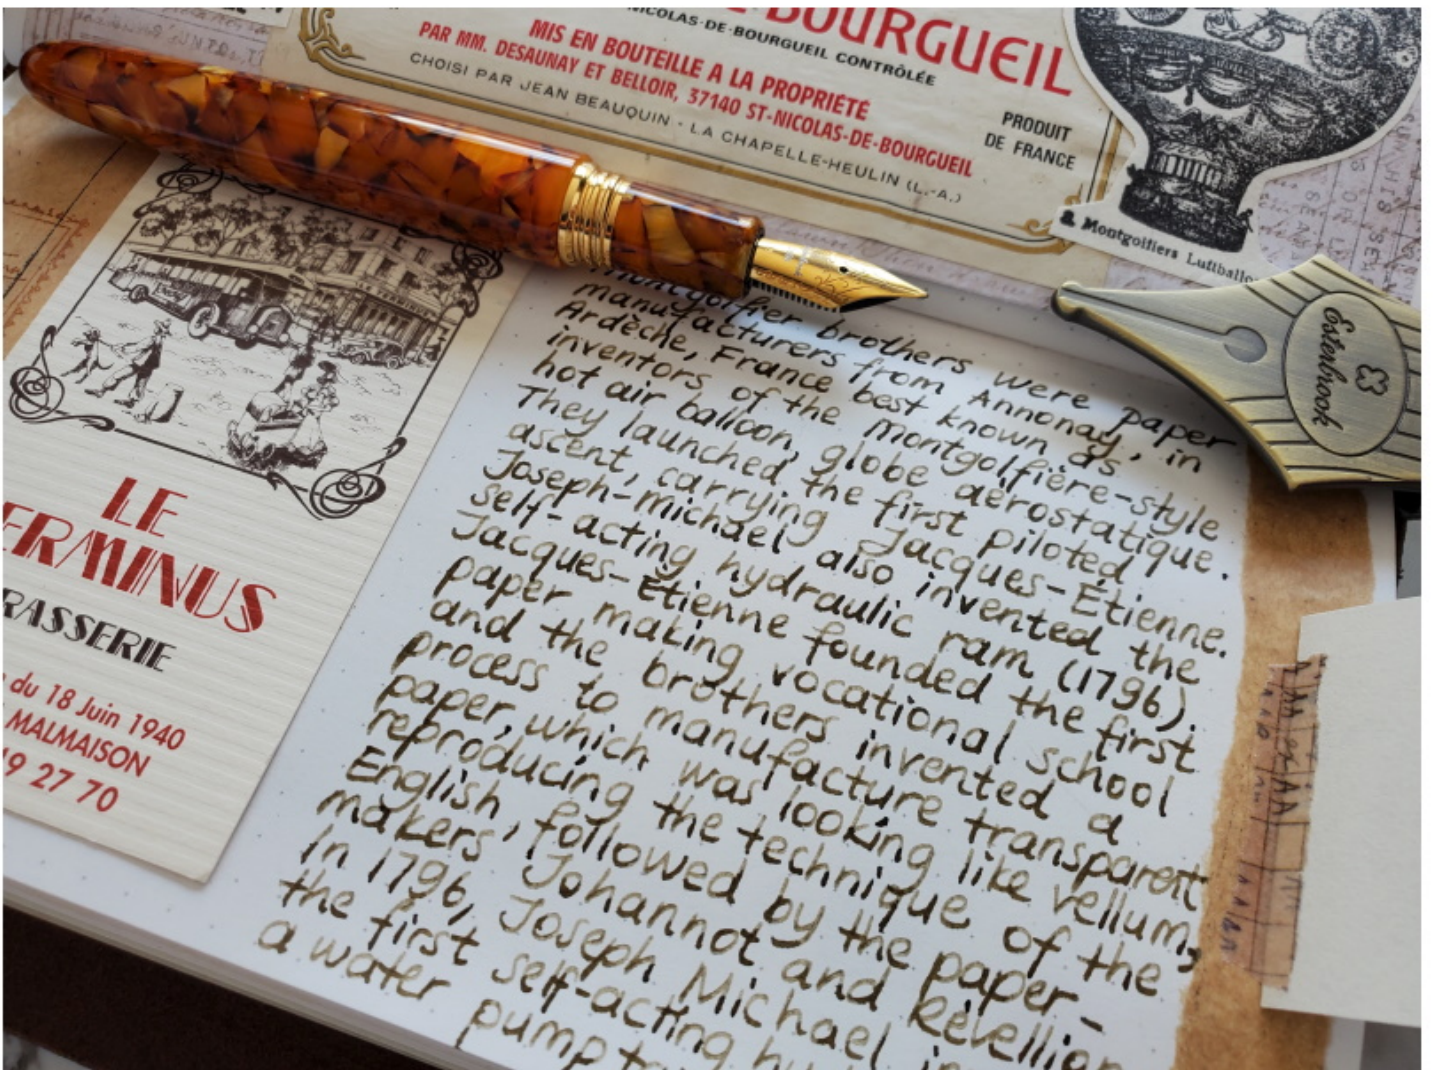 BOURGUEIL
NICOLAS-DE-BOURGUEIL CONTRÔLÉE
MIS EN BOUTEILLE A LA PROPRIÉTÉ
PAR MM. DESAUNAY ET BELLOIR, 37140 ST-NICOLAS-DE-BOURGUEIL
CHOISI PAR JEAN BEAUQUIN - LA CHAPELLE-HEULIN (L.-A.)
PRODUIT
DE FRANCE
Montgolfiers Luftballo
Esterbrook
LE
ERMINUS
RASSERIE
du 18 Juin 1940
MALMAISON
9 27 70
Montgolfier brothers were paper
manufacturers from Annonay, in
Ardèche, France best known as
inventors of the Montgolfière-style
hot air balloon, globe aérostatique.
They launched the first piloted
ascent, carrying Jacques-Étienne.
Joseph-Michael also invented the
self-acting hydraulic ram (1796).
Jacques-Étienne founded the first
paper making vocational school
and the brothers invented a
process to manufacture transparent
paper, which was looking like vellum,
reproducing the technique of the
English, followed by the paper-
makers Johannot and Révellion
In 1796, Joseph Michael in
the first self-acting hy
a water pump